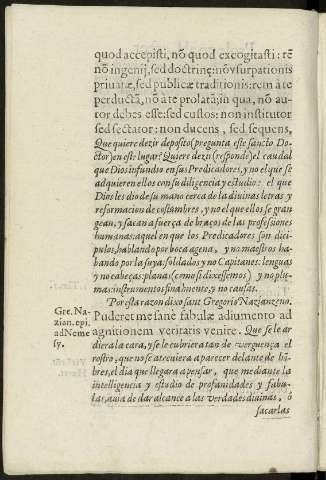 quod accepisti, nõ quod excogitasti: rẽ
nõ ingenij, sed doctrinę: nõ vsurpationis
priuatæ, sed publicæ traditionis: rem à te
perductã, nõ à te prolatã: in qua, nõ au-
tor debes esse: sed custos: non institutor
sed sectator: non ducens, sed sequens,
Que quiere dezir deposito (pregunta este sancto Do-
ctor) en este lugar? Quiere dezir (responde) el caudal
que Dios infundio en sus Predicadores, y no el que se
adquieren ellos con su diligencia y estudio: el que
Dios les dio de su mano cerca de la diuinas letras y
reformacion de costumbres, y no el que ellos se gran
gean, y sacan a fuerça de braços de las professiones
humanas: aquel en que los Predicadores son dici-
pulos, hablando por boca agena, y no maestros ha-
blando por la suya: soldados y no Capitanes: lenguas
y no cabeças: planas (como si dixessemos) y no plu-
mas: instrumentos finalmente, y no causas.
Por esta razon dixo sant Gregorio Nazanzeno.
Gre. Na-
zian. epi.
ad Neme
sy.
Puderet me sanè fabulæ adiumento ad
agnitionem veritatis venire. Que se le ar
diera la cara, y se le cubriera tan de verguença el
rostro, que no se atreuiera a parecer delante de hõ-
bres, el dia que llegara a pensar, que mediante la
intelligencia y estudio de profanidades y fabu-
las, auia de dar alcance a las verdades diuinas, ò
sacarlas